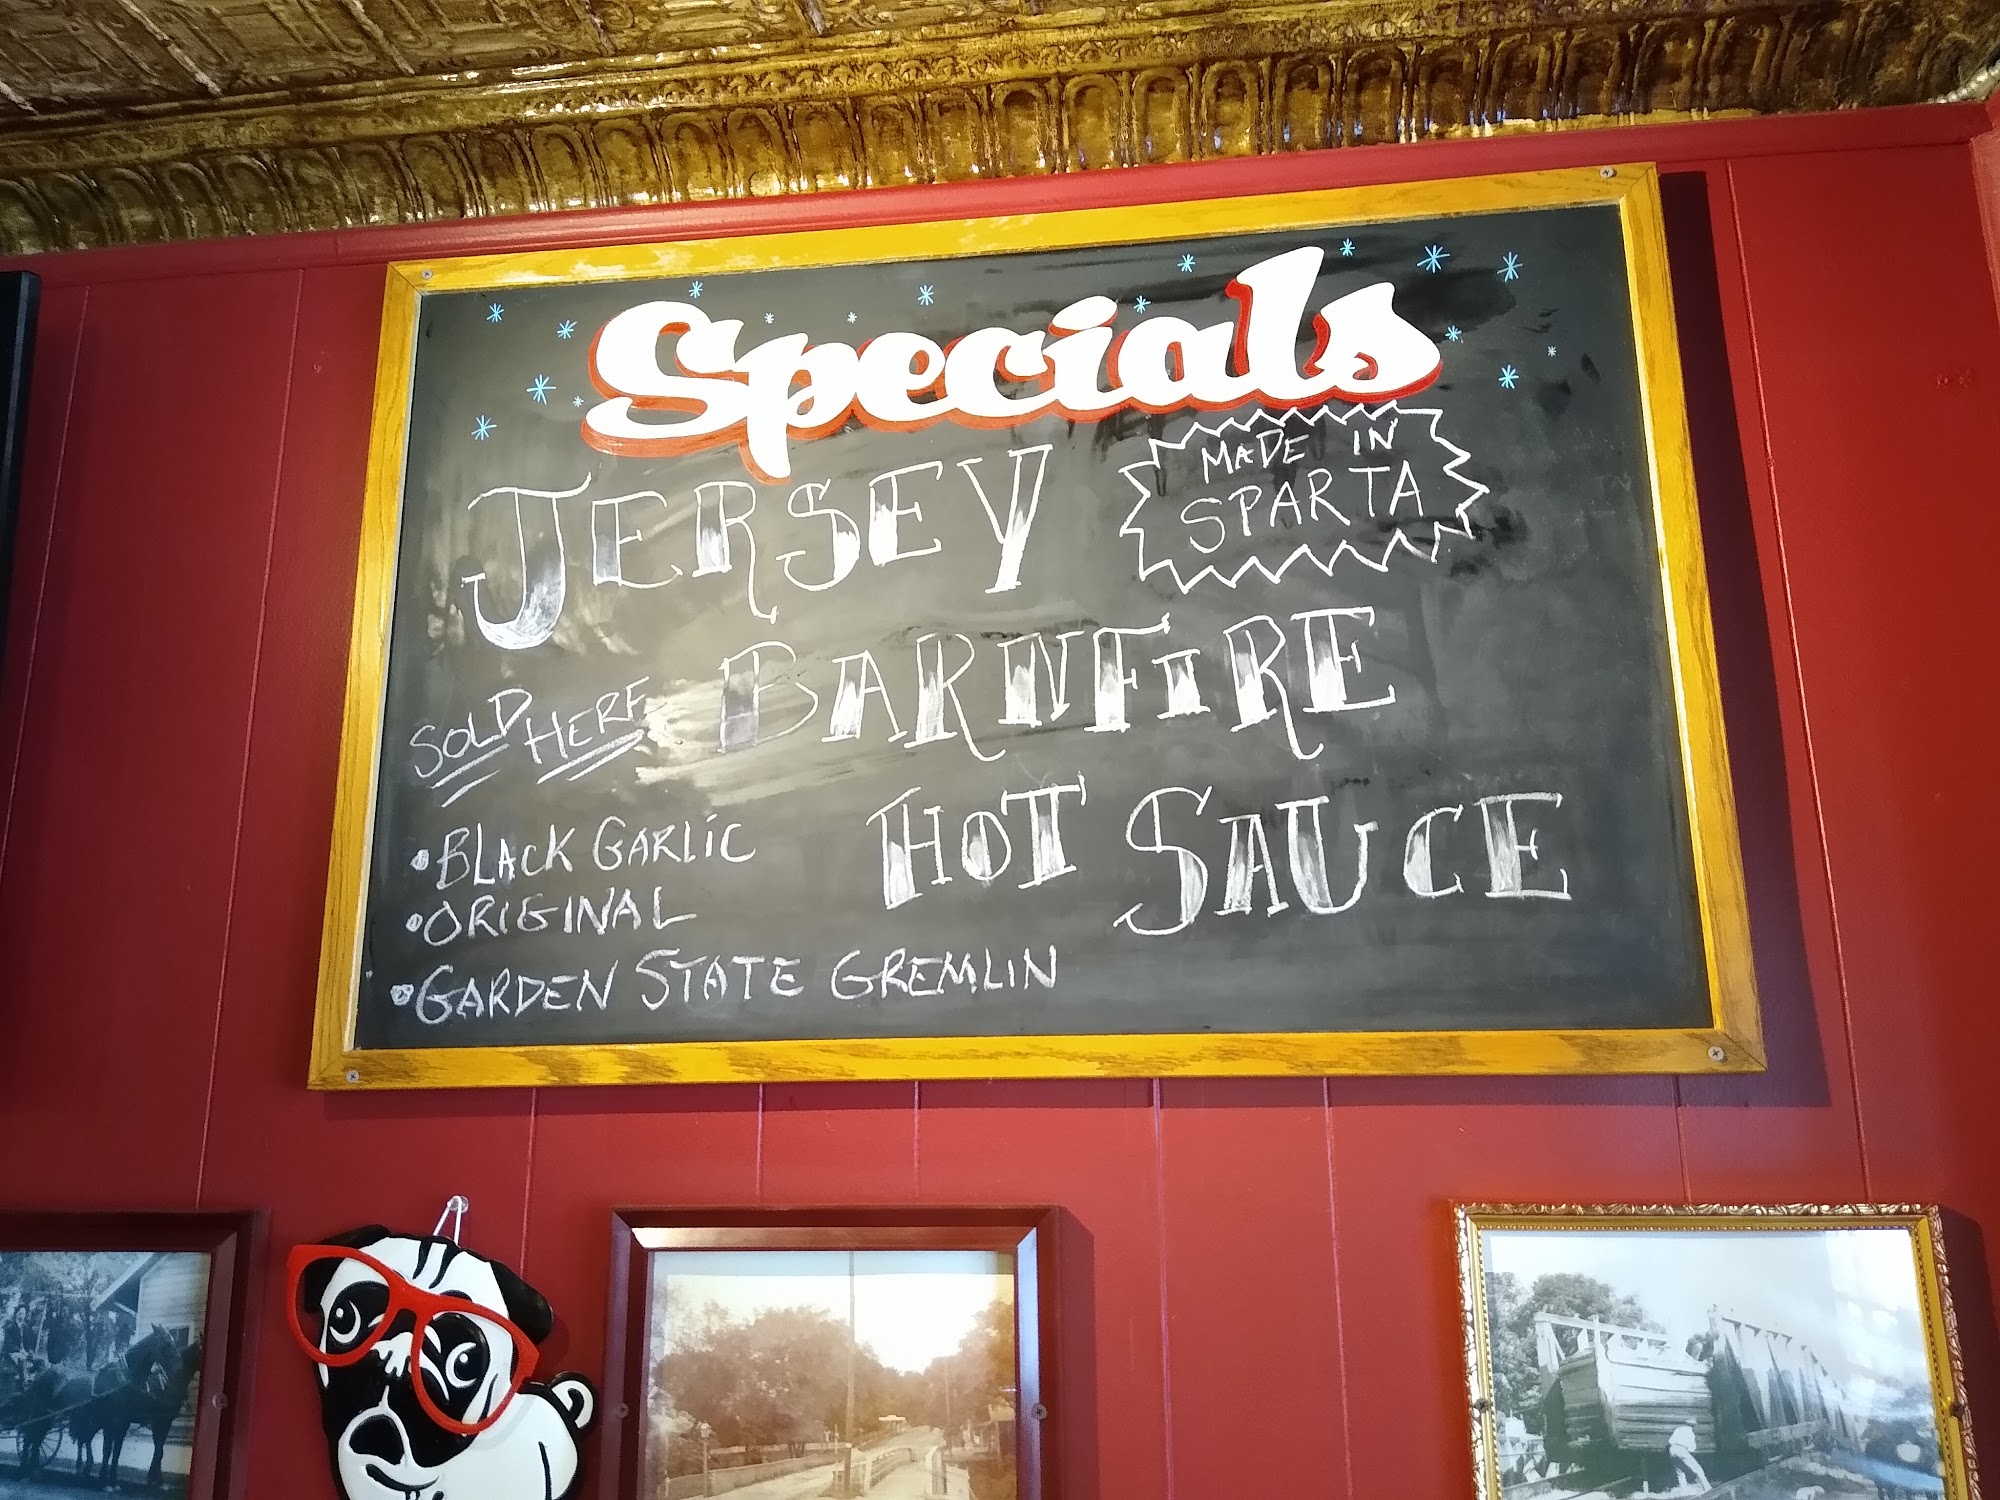 Specials
JERSEY
MADE IN
SPARTA
BARNFIRE
SOLD HERE
HOT SAUCE
• BLACK GARLIC
• ORIGINAL
• GARDEN STATE GREMLIN